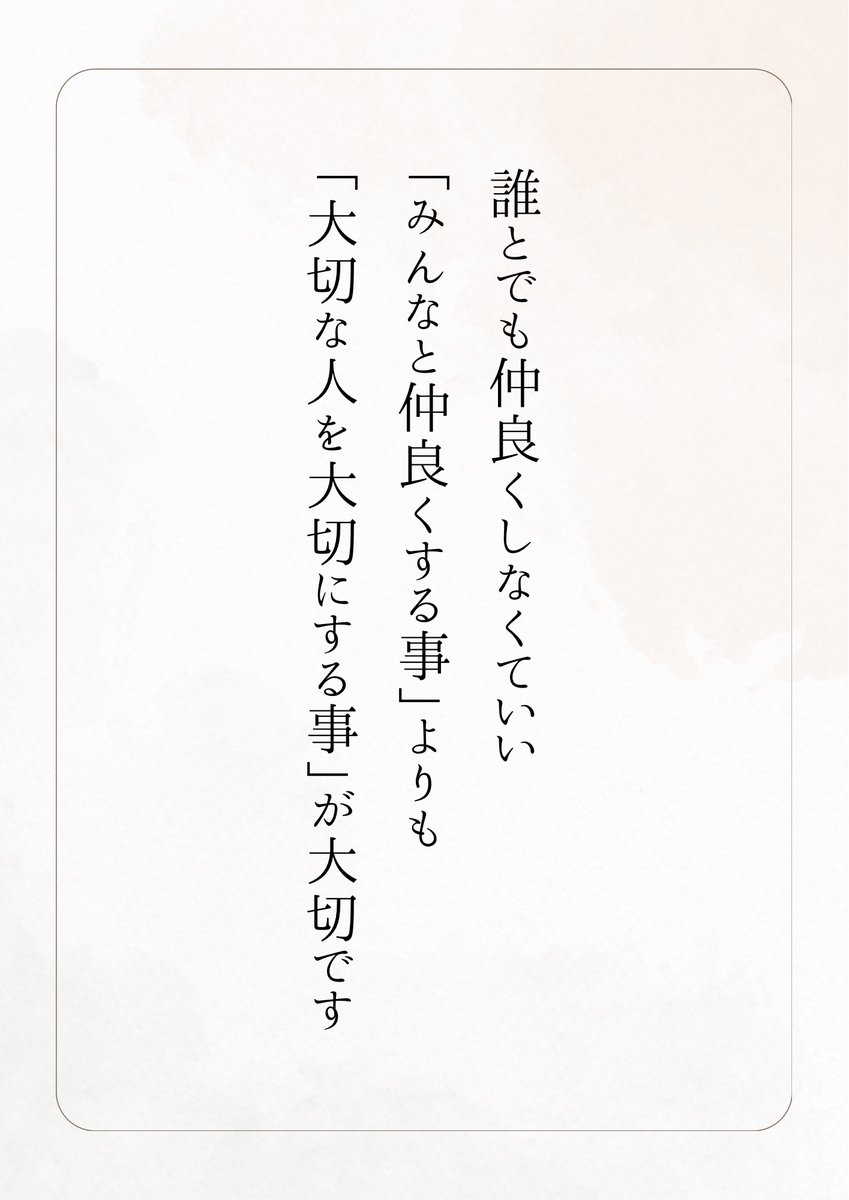 誰とでも仲良くしなくていい
「みんなと仲良くする事」よりも
「大切な人を大切にする事」が大切です